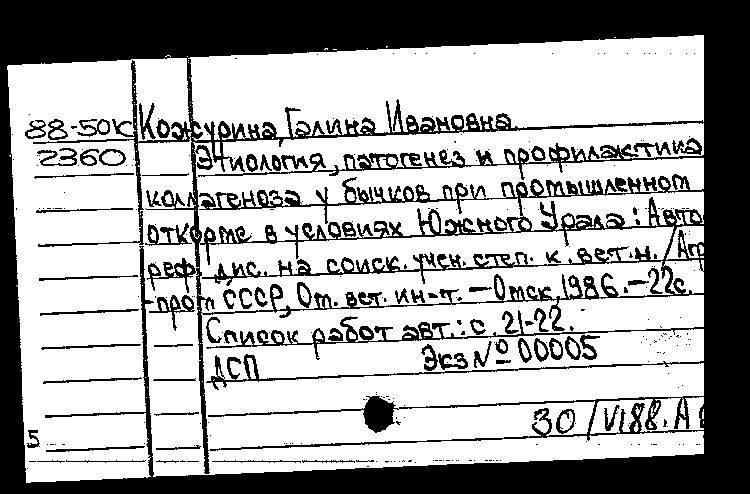 88-50К Кожурина, Галина Ивановна.
2360 Этиология, патогенез и профилактика
коллагеноза у бычков при промышленном
откорме в условиях Южного Урала: Авто-
реф. дис. на соиск. учен. степ. к. вет. н. / Агр
-пром СССР, Ом. вет. ин-т. — Омск, 1986. — 22с.
Список работ авт.: с. 21-22.
ДСП Экз № 00005
30/VI88. А
5